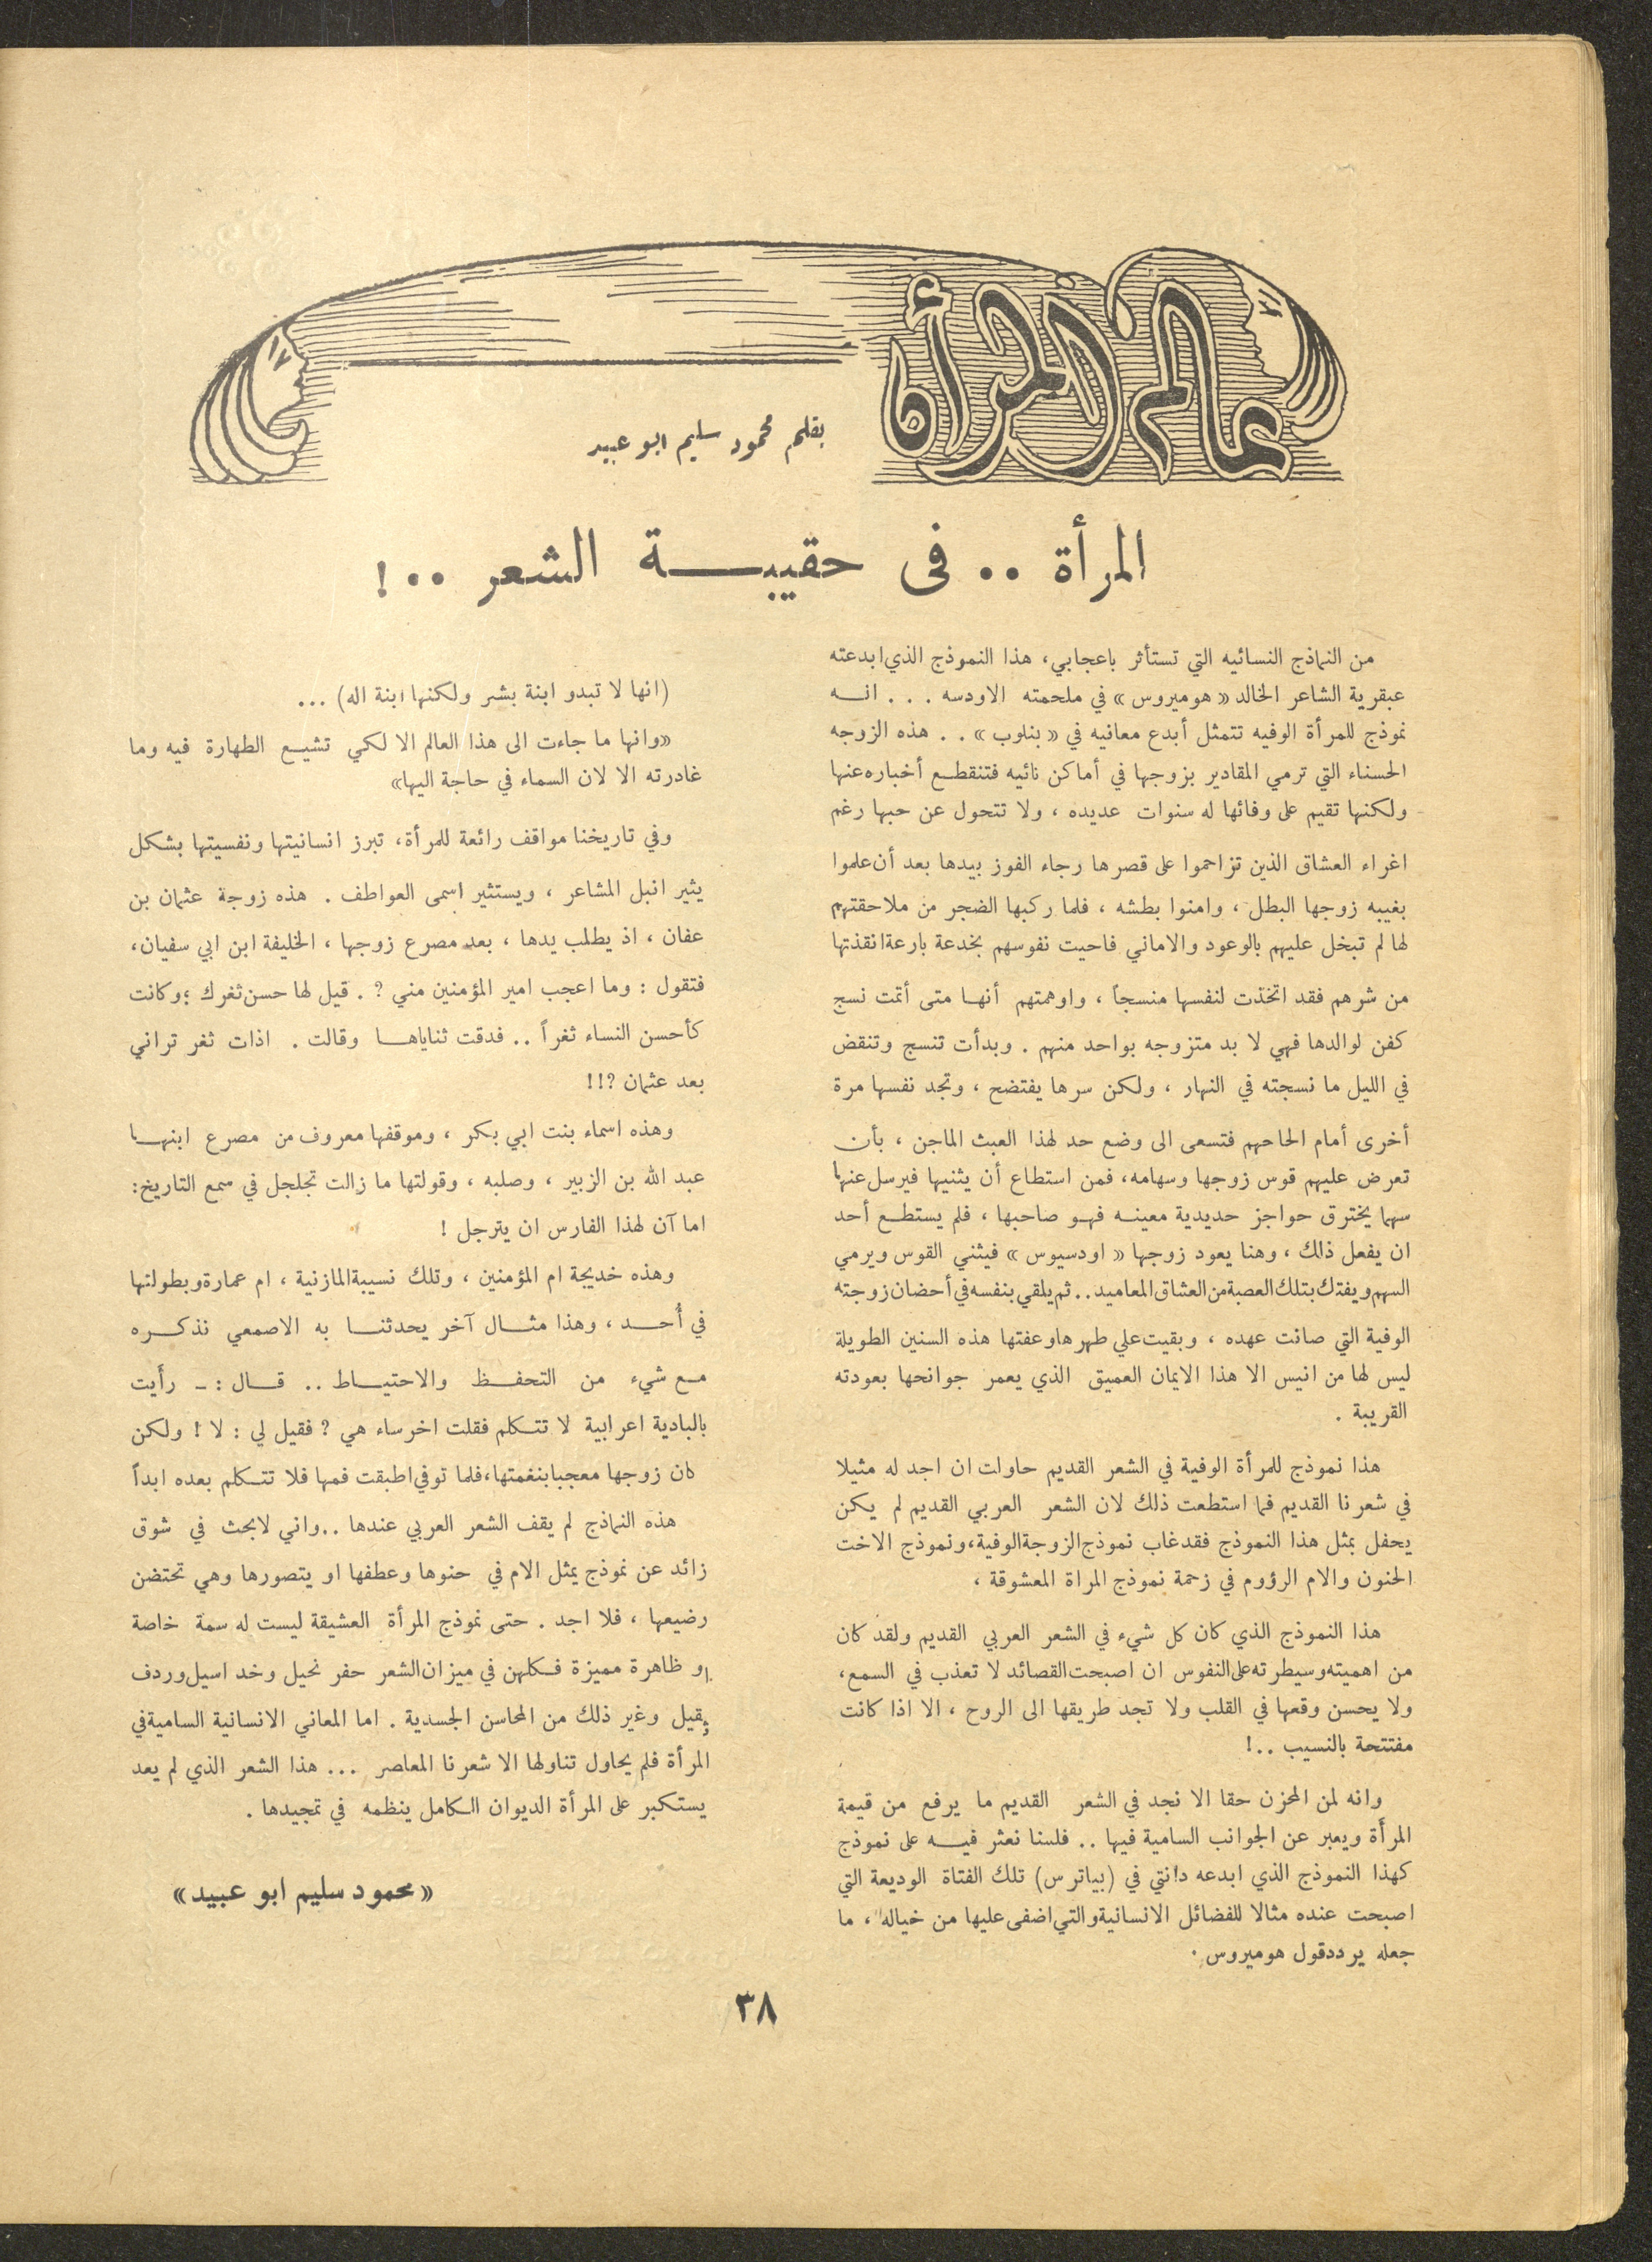 عالم المرأة
بقلم محمود سليم ابو عبيد
المرأة .. فى حقيبة الشعر ..!
من النماذج النسائيه التي تستأثر باعجابي، هذا النموذج الذي ابدعته
عبقرية الشاعر الخالد « هوميروس » في ملحمته الاودسه . . . انه
نموذج للمرأة الوفيه تتمثل أبدع معانيه في « بنلوب » . . هذه الزوجه
الحسناء التي ترمي المقادير بزوجها في أماكن نائيه فتنقطع أخباره عنها
ولكنها تقيم على وفائها له سنوات عديده ، ولا تتحول عن حبها رغم
اغراء العشاق الذين تزاحموا على قصرها رجاء الفوز بيدها بعد أن علموا
بغيبه زوجها البطل ، وامنوا بطشه ، فلما ركبها الضجر من ملاحقتهم
لها لم تبخل عليهم بالوعود والاماني فاحيت نفوسهم بخدعة بارعة انقذتها
من شرهم فقد اتخذت لنفسها منسجاً ، واوهمتهم أنها متى أتمت نسج
كفن لوالدها فهي لا بد متزوجه بواحد منهم . وبدأت تنسج وتنقض
في الليل ما نسجته في النهار ، ولكن سرها يفتضح ، وتجد نفسها مرة
أخرى أمام الحاحهم فتسعى الى وضع حد لهذا العبث الماجن ، بأن
تعرض عليهم قوس زوجها وسهامه، فمن استطاع أن يثنيها فيرسل عنها
سهما يخترق حواجز حديدية معينه فهو صاحبها ، فلم يستطع أحد
ان يفعل ذلك ، وهنا يعود زوجها « اودسيوس » فيثني القوس ويرمي
السهم ويفتك بتلك العصبة من العشاق المعاميد .. ثم يلقي بنفسه في أحضان زوجته
الوفية التي صانت عهده ، وبقيت علي طهرها وعفتها هذه السنين الطويلة
ليس لها من انيس الا هذا الايمان العميق الذي يعمر جوانحها بعودته
القريبة .
هذا نموذج للمرأة الوفية في الشعر القديم حاولت ان اجد له مثيلا
في شعرنا القديم فما استطعت ذلك لان الشعر العربي القديم لم يكن
يحفل بمثل هذا النموذج فقد غاب نموذج الزوجة الوفية، ونموذج الاخت
الحنون والام الرؤوم في زحمة نموذج المراة المعشوقة ،
هذا النموذج الذي كان كل شيء في الشعر العربي القديم ولقد كان
من اهميته وسيطرته على النفوس ان اصبحت القصائد لا تعذب في السمع،
ولا يحسن وقعها في القلب ولا تجد طريقها الى الروح ، الا اذا كانت
مفتتحة بالنسيب ..!
وانه لمن المحزن حقا الا نجد في الشعر القديم ما يرفع من قيمة
المرأة ويعبر عن الجوانب السامية فيها .. فلسنا نعثر فيه على نموذج
كهذا النموذج الذي ابدعه دانتي في (بياترس) تلك الفتاة الوديعة التي
اصبحت عنده مثالا للفضائل الانسانية والتي اضفى عليها من خياله ، ما
جعله يردد قول هوميروس .
(انها لا تبدو ابنة بشر ولكنها ابنة اله) ...
«وانها ما جاءت الى هذا العالم الا لكي تشيع الطهارة فيه وما
غادرته الا لان السماء في حاجة اليها»
وفي تاريخنا مواقف رائعة للمرأة، تبرز انسانيتها ونفسيتها بشكل
يثير انبل المشاعر ، ويستثير اسمى العواطف . هذه زوجة عثمان بن
عفان ، اذ يطلب يدها ، بعد مصرع زوجها ، الخليفة ابن ابي سفيان،
فتقول : وما اعجب امير المؤمنين مني ? . قيل لها حسن ثغرك ؛ وكانت
كأحسن النساء ثغراً .. فدقت ثناياها وقالت . اذات ثغر تراني
بعد عثمان ?!!
وهذه اسماء بنت ابي بكر ، وموقفها معروف من مصرع ابنها
عبد الله بن الزبير ، وصلبه ، وقولتها ما زالت تجلجل في سمع التاريخ:
اما آن لهذا الفارس ان يترجل !
وهذه خديجة ام المؤمنين ، وتلك نسيبة المازنية ، ام عمارة وبطولتها
في أُحد ، وهذا مثال آخر يحدثنا به الاصمعي نذكره
مع شيء من التحفظ والاحتياط .. قال : ـ رأيت
بالبادية اعرابية لا تتكلم فقلت اخرساء هي ? فقيل لي : لا ! ولكن
كان زوجها معجبا بنغمتها، فلما توفي اطبقت فمها فلا تتكلم بعده ابداً
هذه النماذج لم يقف الشعر العربي عندها .. واني لابحث في شوق
زائد عن نموذج يمثل الام في حنوها وعطفها او يتصورها وهي تحتضن
رضيعها ، فلا اجد . حتى نموذج المرأة العشيقة ليست له سمة خاصة
او ظاهرة مميزة فكلهن في ميزان الشعر حفر نحيل وخد اسيل وردف
ثقيل وغير ذلك من المحاسن الجسدية . اما المعاني الانسانية السامية في
المرأة فلم يحاول تناولها الا شعرنا المعاصر ... هذا الشعر الذي لم يعد
يستكبر على المرأة الديوان الكامل ينظمه في تمجيدها .
« محمود سليم ابو عبيد »
٣٨